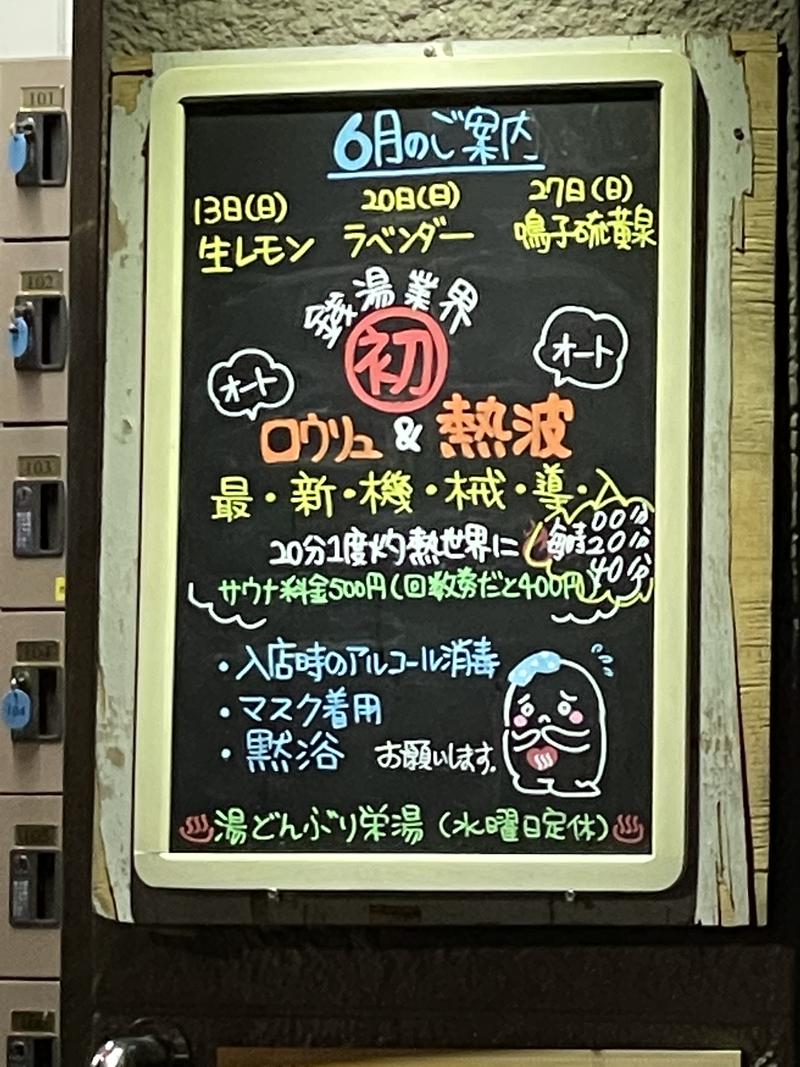 6月のご案内
13日(日) 20日(日) 27日(日)
生レモン ラベンダー 鳴子硫黄泉
銭湯業界
初
オート オート
ロウリュ & 熱波
最・新・機・械・導・入
20分1度灼熱世界に
毎時 00分 20分 40分
サウナ料金500円(回数券だと400円)
・入店時のアルコール消毒
・マスク着用
・黙浴 お願いします。
湯どんぶり栄湯(水曜日定休)
101
102
103
104
104